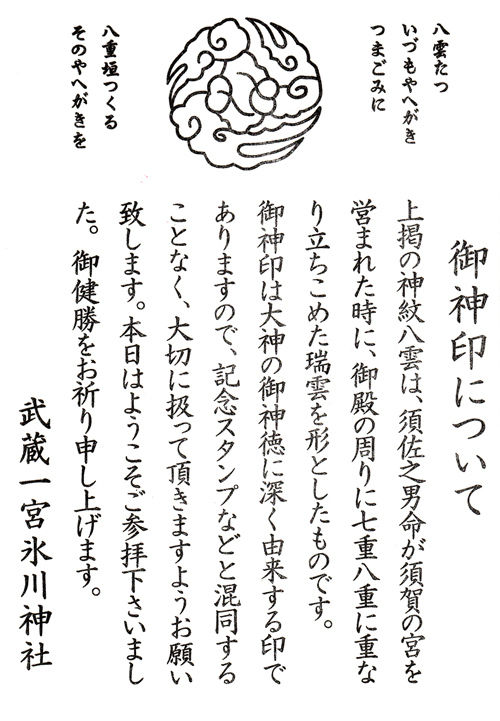 八雲たつ
いづもやへがき
つまごみに
八重垣つくる
そのやへがきを
御神印について
上掲の神紋八雲は、須佐之男命が須賀の宮を
営まれた時に、御殿の周りに七重八重に重な
り立ちこめた瑞雲を形としたものです。
御神印は大神の御神徳に深く由来する印で
ありますので、記念スタンプなどと混同する
ことなく、大切に扱って頂きますようお願い
致します。本日はようこそご参拝下さいまし
た。御健勝をお祈り申し上げます。
武蔵一宮氷川神社